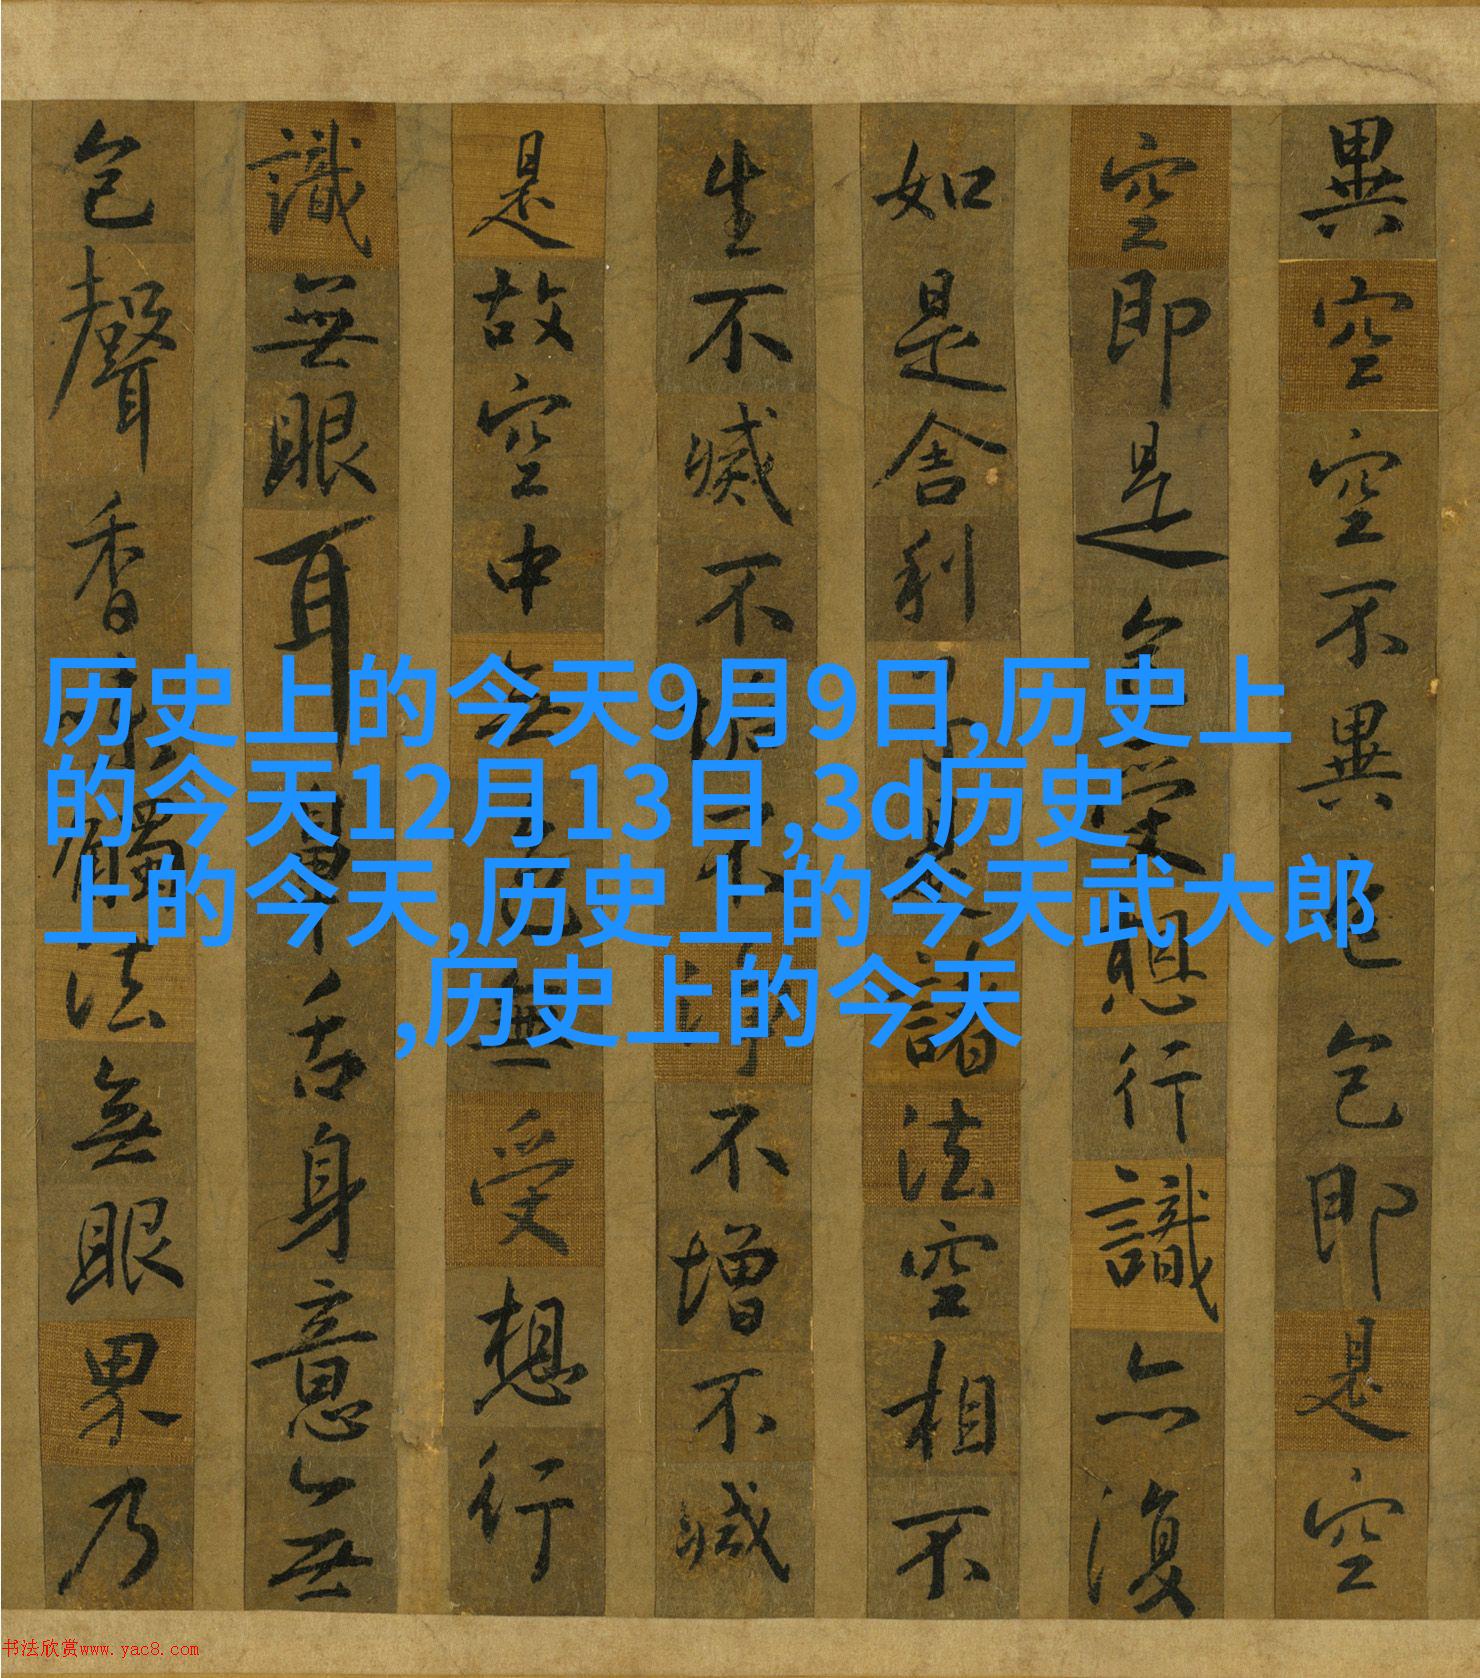 異空空不異色色即是空
空即是色受想行識亦復
如是舍利諸法空相不
生不滅不垢不淨不增不減
是故空中無色無受想行
識無眼耳鼻舌身意無
色聲香味觸法無眼界乃
历史上的今天9月9日,历史上
的今天12月13日,3d历史
上的今天,历史上的今天武大郎
,历史上的今天
书法欣赏www.yac8.com